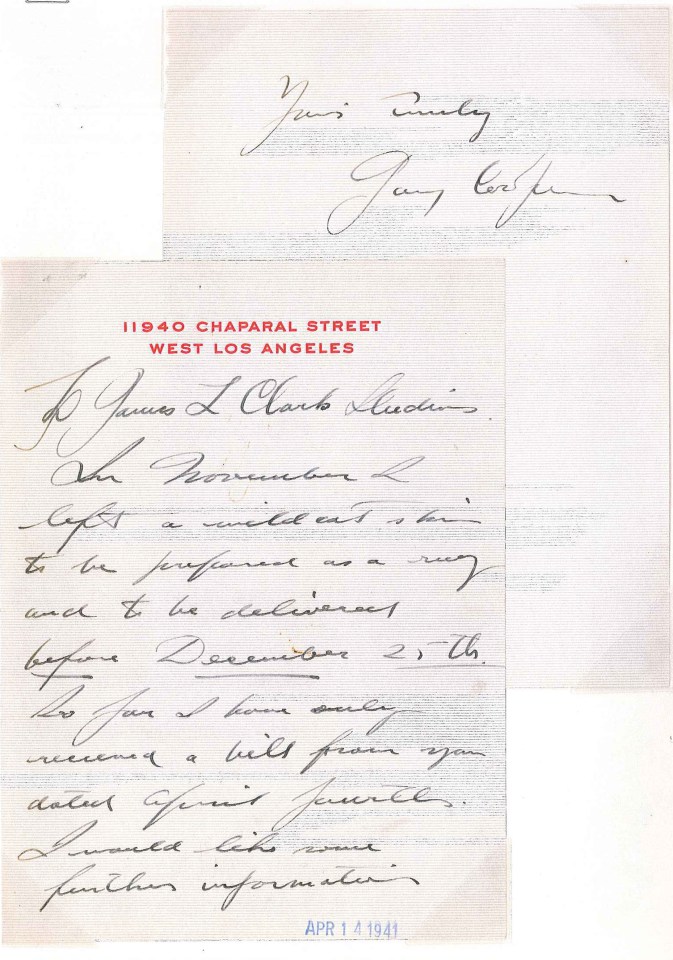 11940 CHAPARAL STREET
WEST LOS ANGELES
To James L Clark Studios
In November I
left a wildcat skin
to be prepared as a rug
and to be delivered
before December 25th.
So far I have only
received a bill from you
dated April fourth.
I would like some
further information
APR 14 1941
Yours truly
Gary Cooper